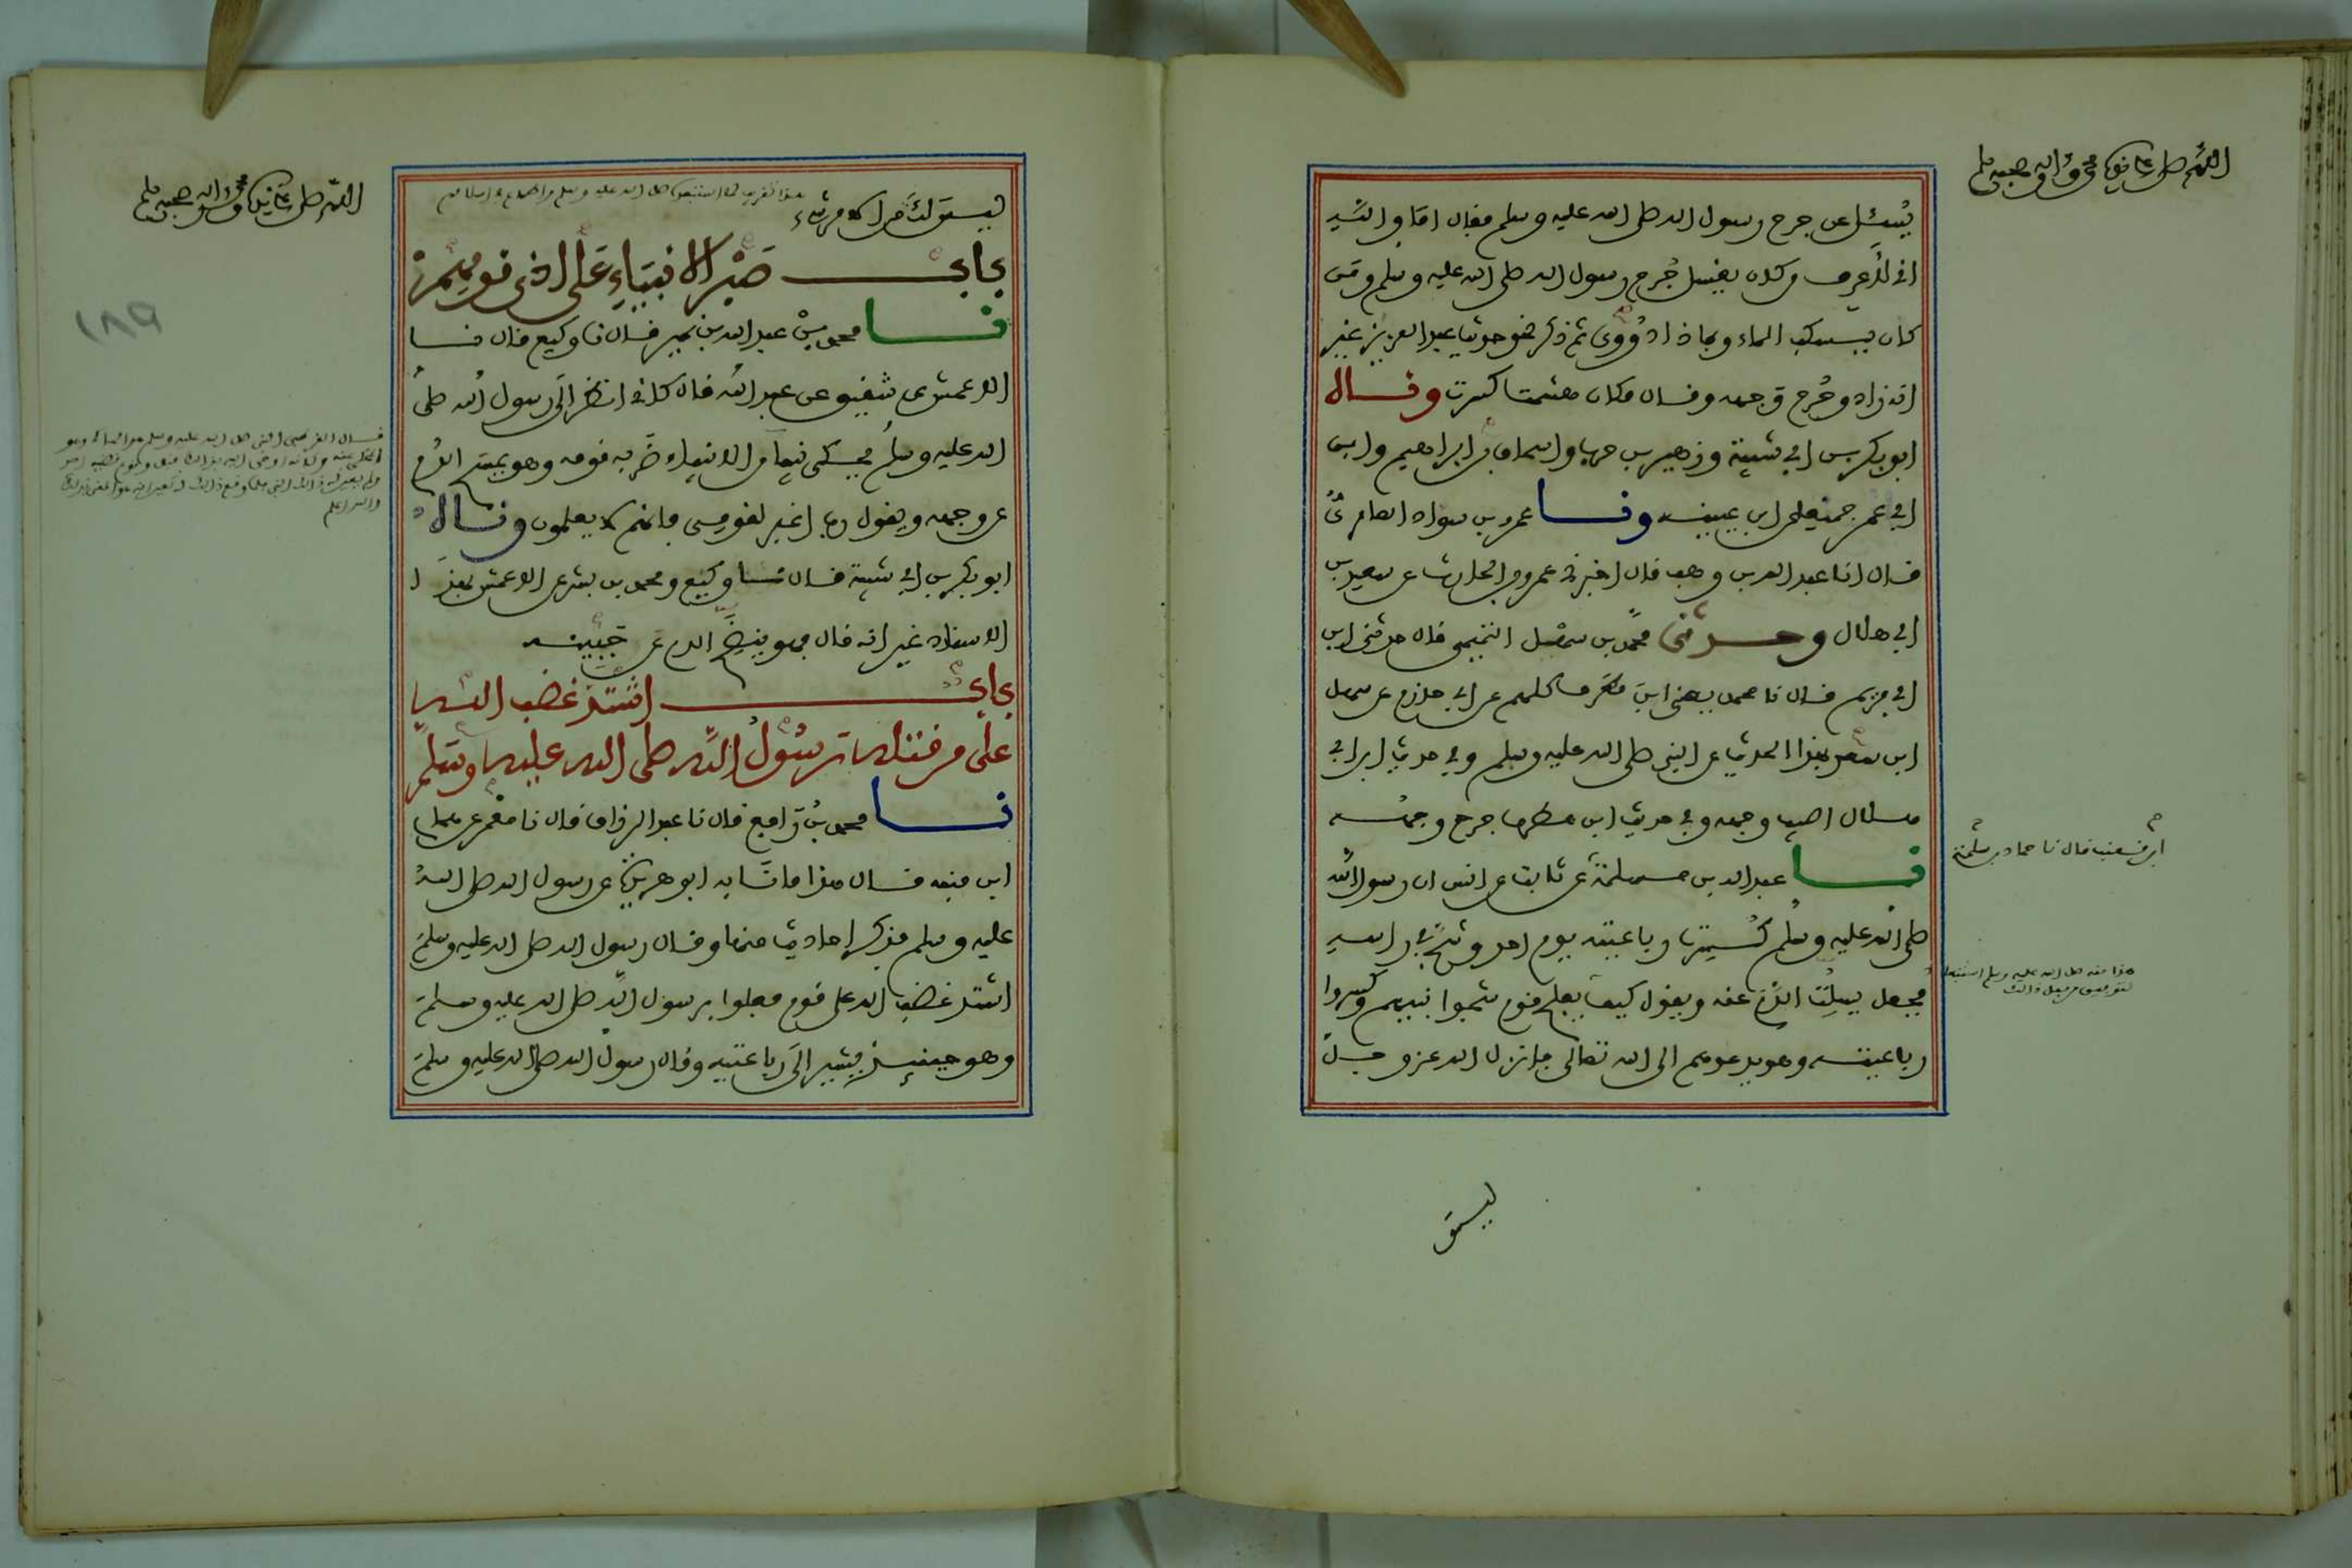 اللهم صل على نبيك محمد واله وصحبه وسلم
يُسْئل عن جرح رسول الله صلى الله عليه وسلم فقال اما والله
اني لأعرف من كان يغسل جُرح رسول الله صلى الله عليه وسلم ومن
كان يسكب الماء وبماذا دُووي ثم ذكر نحو حديث عبد العزيز غير
انه زاد وجُرح وجهه وقال مكان هشمت كسرت وقال
ابو بكر بن ابي شيبة وزهير بن حرب واسحاق بن ابراهيم وابن
ابي عمر جميعا عن ابن عيينه ونا عمرو بن سواد العامري
قال انا عبد الله بن وهب قال اخبرني عمرو بن الحارث عن سعيد بن
ابي هلال وحدثني محمد بن سهل التميمي قال حدثني ابن
ابي مريم قال نا محمد يعني ابن مطرف كلهم عن ابي حازم عن سهل
ابن سعد بهذا الحديث عن النبي صلى الله عليه وسلم وفي حديث ابن ابي
هلال اصيب وجهه وفي حديث ابن مطرف جرح وجهه
نا عبد الله بن مسلمة عن ثابت عن انس ان رسول الله
ابن قعنب قال نا حماد بن سلمة
صلى الله عليه وسلم كُسِرَت رباعيته يوم احد وشج في راسه
فجعل يسلِتُ الدم عنه ويقول كيف يفلح قوم شجوا نبيهم وكسروا
هذا منه صلى الله عليه وسلم استبعاد
لتوفيق من فعل ذلك
رباعيته وهو يدعوهم الى الله تعالى فانزل الله عز وجل
ليس
اللهم صل على نبيك محمد واله وصحبه وسلم
ليس لك من الامر شيء
باب صَبْر الانبياءِ عَلى اذى قومِهِمْ
نا محمد بن عبد الله بن نمير قال نا وكيع قال نا
الاعمش عن شقيق عن عبد الله قال كاني انظر الى رسول الله صلى
الله عليه وسلم يحكي نبيا من الانبياء ضربه قومه وهو يمسح الدم
عن وجهه ويقول رب اغفر لقومي فانهم لا يعلمون وقال
ابو بكر بن ابي شيبة قال نا وكيع ومحمد بن بشر عن الاعمش بهذا
الاسناد غير انه قال فهو ينضح الدم عن جبينه
باب اشتد غضب الله
على من قتله رسُولُ الله صلى الله عليه وسلم
نا محمد بن رافع قال نا عبد الرزاق قال نا معمر عن همام
ابن منبه قال هذا ما نا به ابو هريرة عن رسول الله صلى الله
عليه وسلم فذكر احاديث منها وقال رسول الله صلى الله عليه وسلم
اشتد غضب الله على قوم فعلوا برسول الله صلى الله عليه وسلم
وهو حينئذ يشير الى رباعيته وقال رسول الله صلى الله عليه وسلم
١٨٩